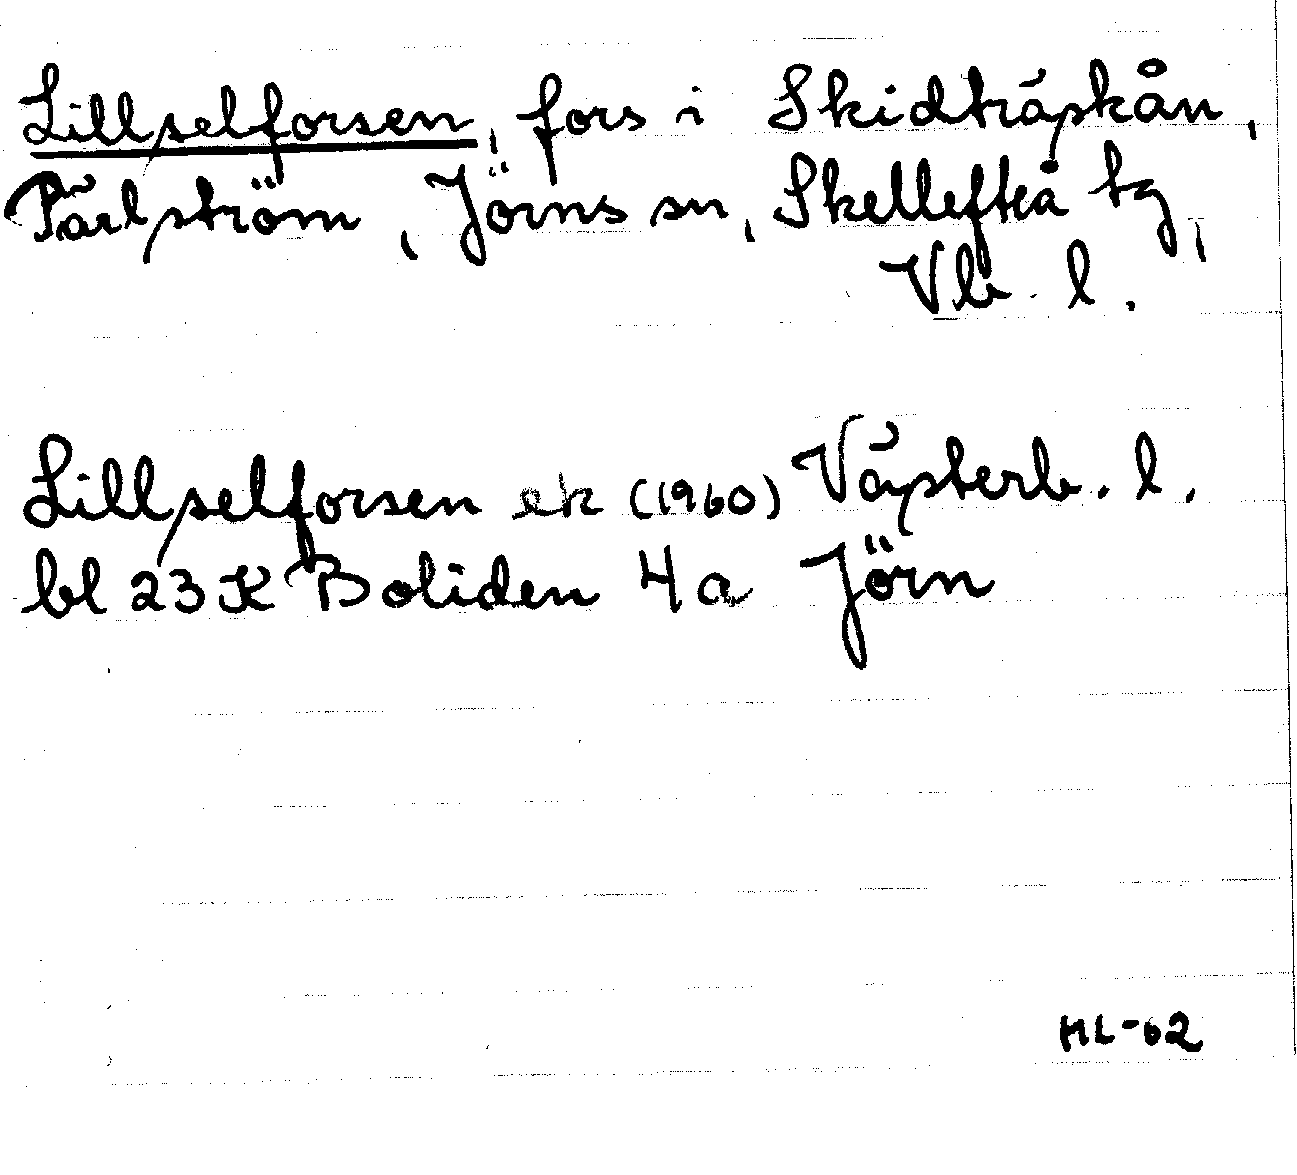 Lillselforsen, fors i Skidträskån,
Pärlström, Jörns sn, Skellefteå tg,
Vb. l.
Lillselforsen ek (1960) Västerb. l.
bl 23 K Boliden 4 a Jörn
ML-62